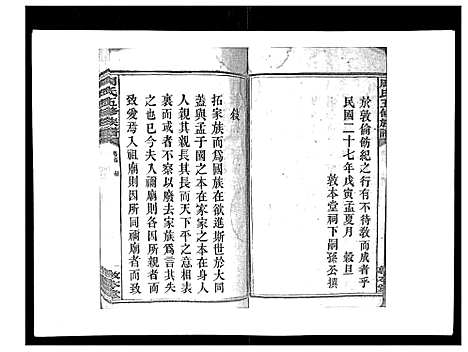 於敦倫飭紀之行有不待敎而成者乎
民國二十七年戊寅孟夏月　穀旦
敦本堂祠下嗣孫丕撰
敦本堂
周氏五修族譜
敘
拓家族而爲國族在欲進斯世於大同
蓋與孟子國之本在家家之本在身人
人親其親長其長而天下平之意相表
裏而淺者不察以廢去家族爲言其失
之也已今夫入禰廟則各因所親者而
致愛焉入祖廟則因所同禰廟者而致
敦本堂